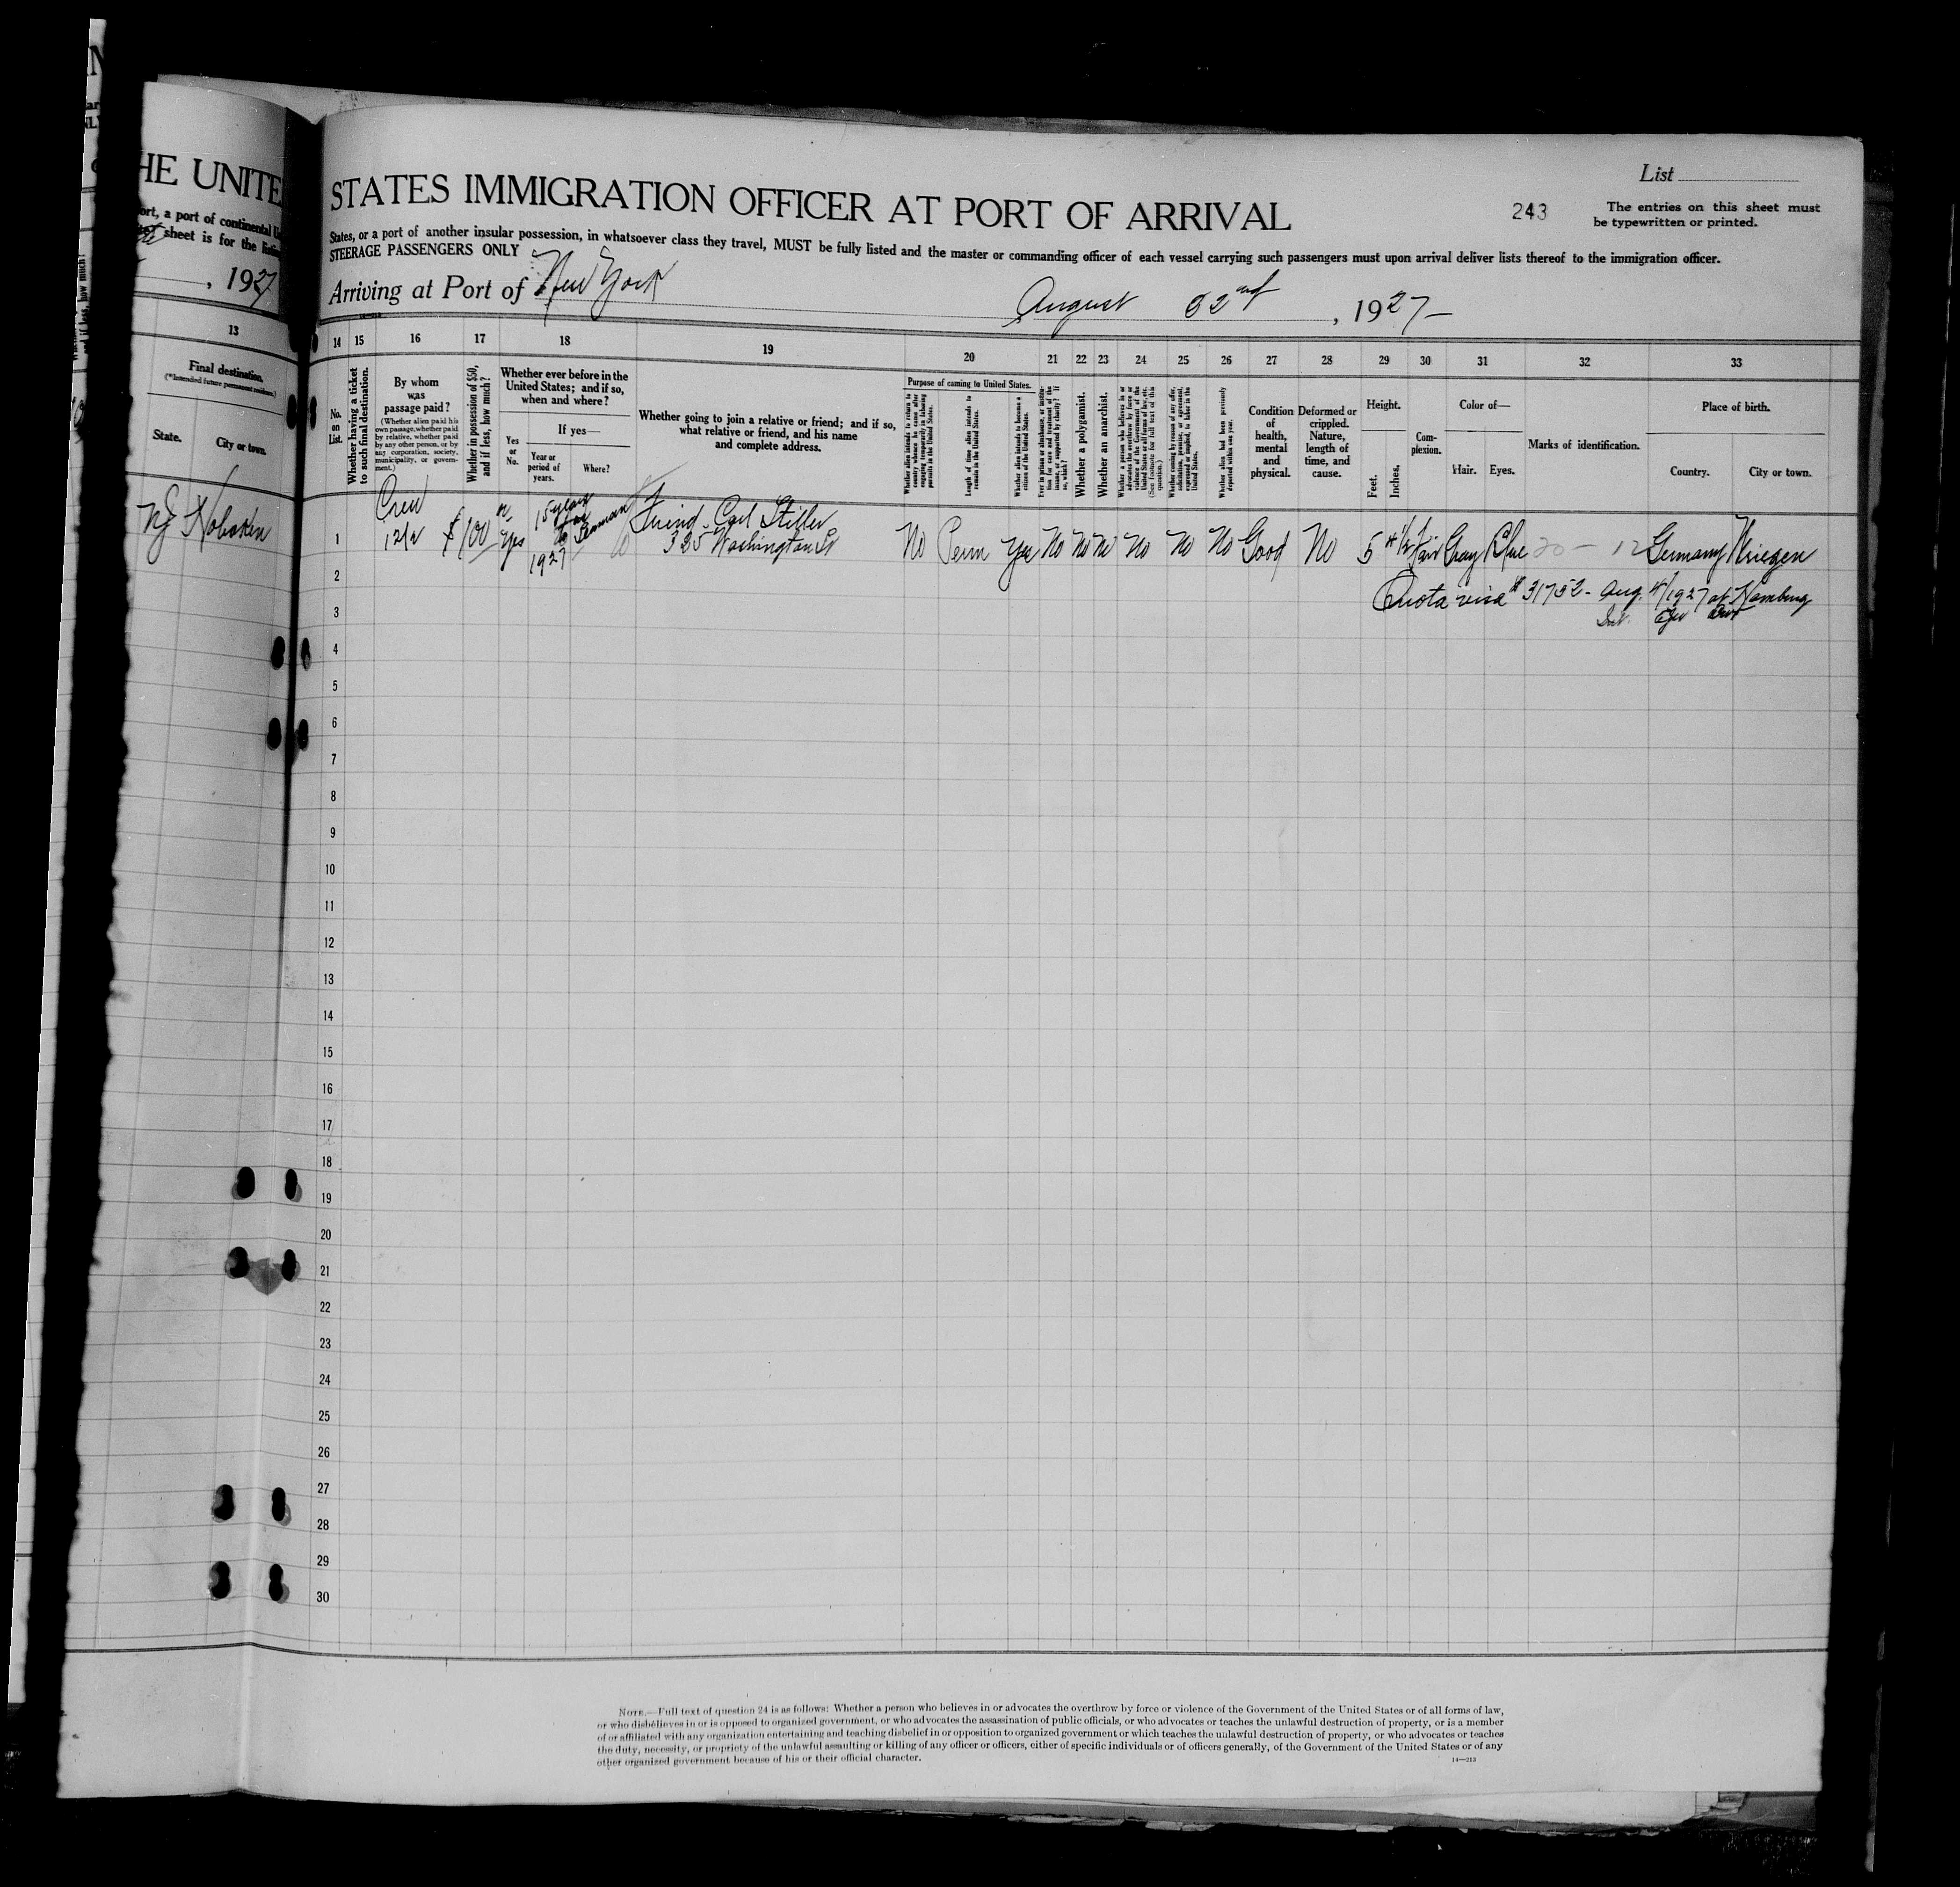 HE UNITE
ort, a port of continental Un
sheet is for the listin
, 1927
13
Final destination.
(*Intended future permanent residence.)
State. City or town.
NJ Hoboken
List
243
The entries on this sheet must
be typewritten or printed.
STATES IMMIGRATION OFFICER AT PORT OF ARRIVAL
States, or a port of another insular possession, in whatsoever class they travel, MUST be fully listed and the master or commanding officer of each vessel carrying such passengers must upon arrival deliver lists thereof to the immigration officer.
STEERAGE PASSENGERS ONLY
Arriving at Port of New York August 22nd, 1927
14 15 16 17 18 19 20 21 22 23 24 25 26 27 28 29 30 31 32 33
No. on List.
Whether having a ticket to such final destination.
By whom was passage paid?
(Whether alien paid his own passage, whether paid by relative, whether paid by any other person, or by any corporation, society, municipality, or government.)
Whether in possession of $50, and if less, how much?
Whether ever before in the United States; and if so, when and where?
Yes or No.
If yes—
Year or period of years.
Where?
Whether going to join a relative or friend; and if so, what relative or friend, and his name and complete address.
Purpose of coming to United States.
Whether alien intends to return to country whence he came after engaging temporarily in laboring pursuits in the United States.
Length of time alien intends to remain in the United States.
Whether alien intends to become a citizen of the United States.
Ever in prison or almshouse, or institution for care and treatment of the insane, or supported by charity? If so, which?
Whether a polygamist.
Whether an anarchist.
Whether a person who believes in or advocates the overthrow by force or violence of the Government of the United States or all forms of law, etc. (See footnote for full text of this question.)
Whether coming by reason of any offer, solicitation, promise, or agreement, expressed or implied, to labor in the United States.
Whether alien had been previously deported within one year.
Condition of health, mental and physical.
Deformed or crippled. Nature, length of time, and cause.
Height.
Feet. Inches.
Complexion.
Color of—
Hair. Eyes.
Marks of identification.
Place of birth.
Country. City or town.
Crew
1 $100 Yes 15 years as Seaman 1927 Friend - Carl Stiller
325 Washington St No Perm Yes No No No No No No Good No 5 4½ Fair Gray Blue 20 - 12 Germany
Quota visa # 31752 - Aug. 4/1927 at Hamburg
2
3
4
5
6
7
8
9
10
11
12
13
14
15
16
17
18
19
20
21
22
23
24
25
26
27
28
29
30
NOTE.—Full text of question 24 is as follows: Whether a person who believes in or advocates the overthrow by force or violence of the Government of the United States or of all forms of law,
or who disbelieves in or is opposed to organized government, or who advocates the assassination of public officials, or who advocates or teaches the unlawful destruction of property, or is a member
of or affiliated with any organization entertaining and teaching disbelief in or opposition to organized government or which teaches the unlawful destruction of property, or who advocates or teaches
the duty, necessity, or propriety of the unlawful assaulting or killing of any officer or officers, either of specific individuals or of officers generally, of the Government of the United States or of any
other organized government because of his or their official character.
14—213